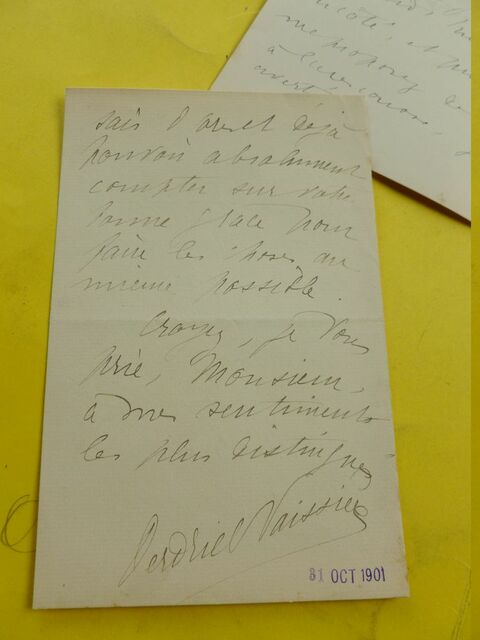 sais d'ores et déjà
pouvoir absolument
compter sur votre
bonne grâce pour
faire les choses au
mieux possible.
Croyez, je vous
prie, Monsieur,
à mes sentiments
les plus distingués
Perdriel Vaissière
31 OCT 1901
et
me proposez de
à